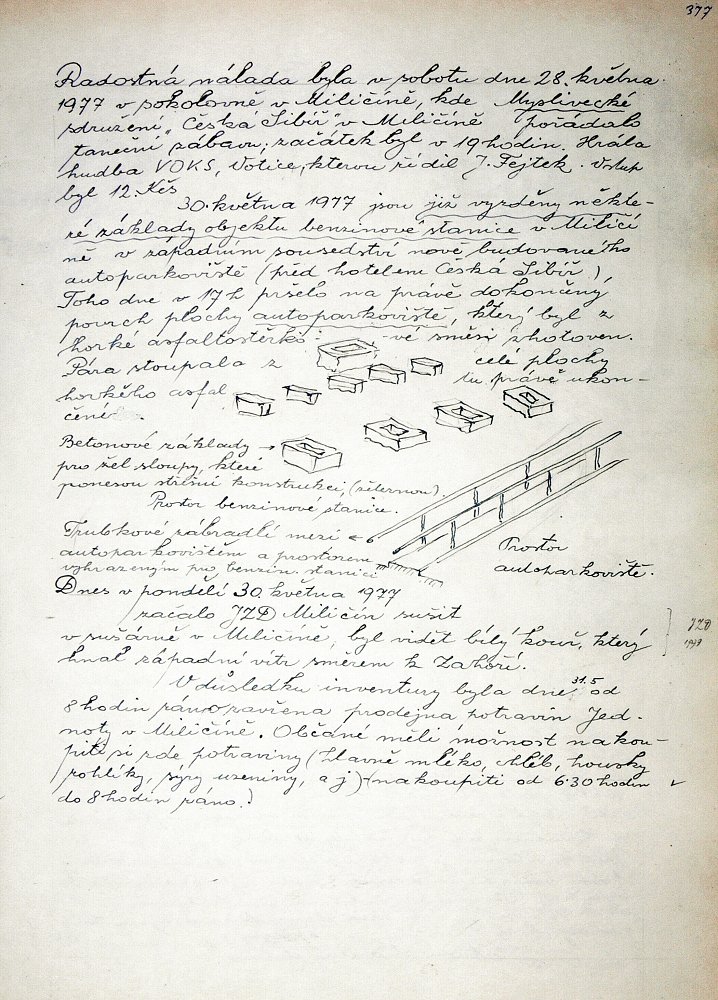 377
Radostná nálada byla v sobotu dne 28. května
1977 v sokolovně v Miličíně, kde Myslivecké
sdružení „Česká Sibiř" v Miličíně pořádalo
taneční zábavu; začátek byl v 19 hodin. Hrála
hudba VOKS, Votice, kterou řídil J. Fejtek. Vstup
byl 12. Kčs
30. května 1977 jsou již vyzděny někte-
ré základy objektu benzinové stanice v Miličí
ně v západním sousedství nově budovaného
autoparkoviště (před hotelem Česká Sibiř).
Toho dne v 17 h pršelo na právě dokončený
povrch plochy autoparkoviště, který byl z
horké asfaltostěrko- -vé směsi zhotoven.
Pára stoupala z celé plochy
horkého asfal tu právě ukon-
čené
Betonové základy →
pro žel sloupy, které
ponesou střešní konstrukci,
Prostor benzinové stanice.
Trubkové zábradlí mezi
autoparkovištěm a prostorem
vyhrazeným pro benzin. stanici
Prostor
autoparkoviště.
Dnes v pondělí 30. května 1977
začalo JZD Miličín sušit
v sušárně v Miličíně, byl vidět bílý kouř, který
hnal západní vítr směrem k Záhoří.
JZD
V důsledku inventury byla dne 31.5 od
8 hodin ráno zavřena prodejna potravin Jed-
noty v Miličíně. Občané měli možnost nakou-
piti si zde, potraviny (hlavně mléko, chléb, housky
rohlíky, sýry uzeniny, a j) (nakoupiti od 6.30 hodin
do 8 hodin ráno.)